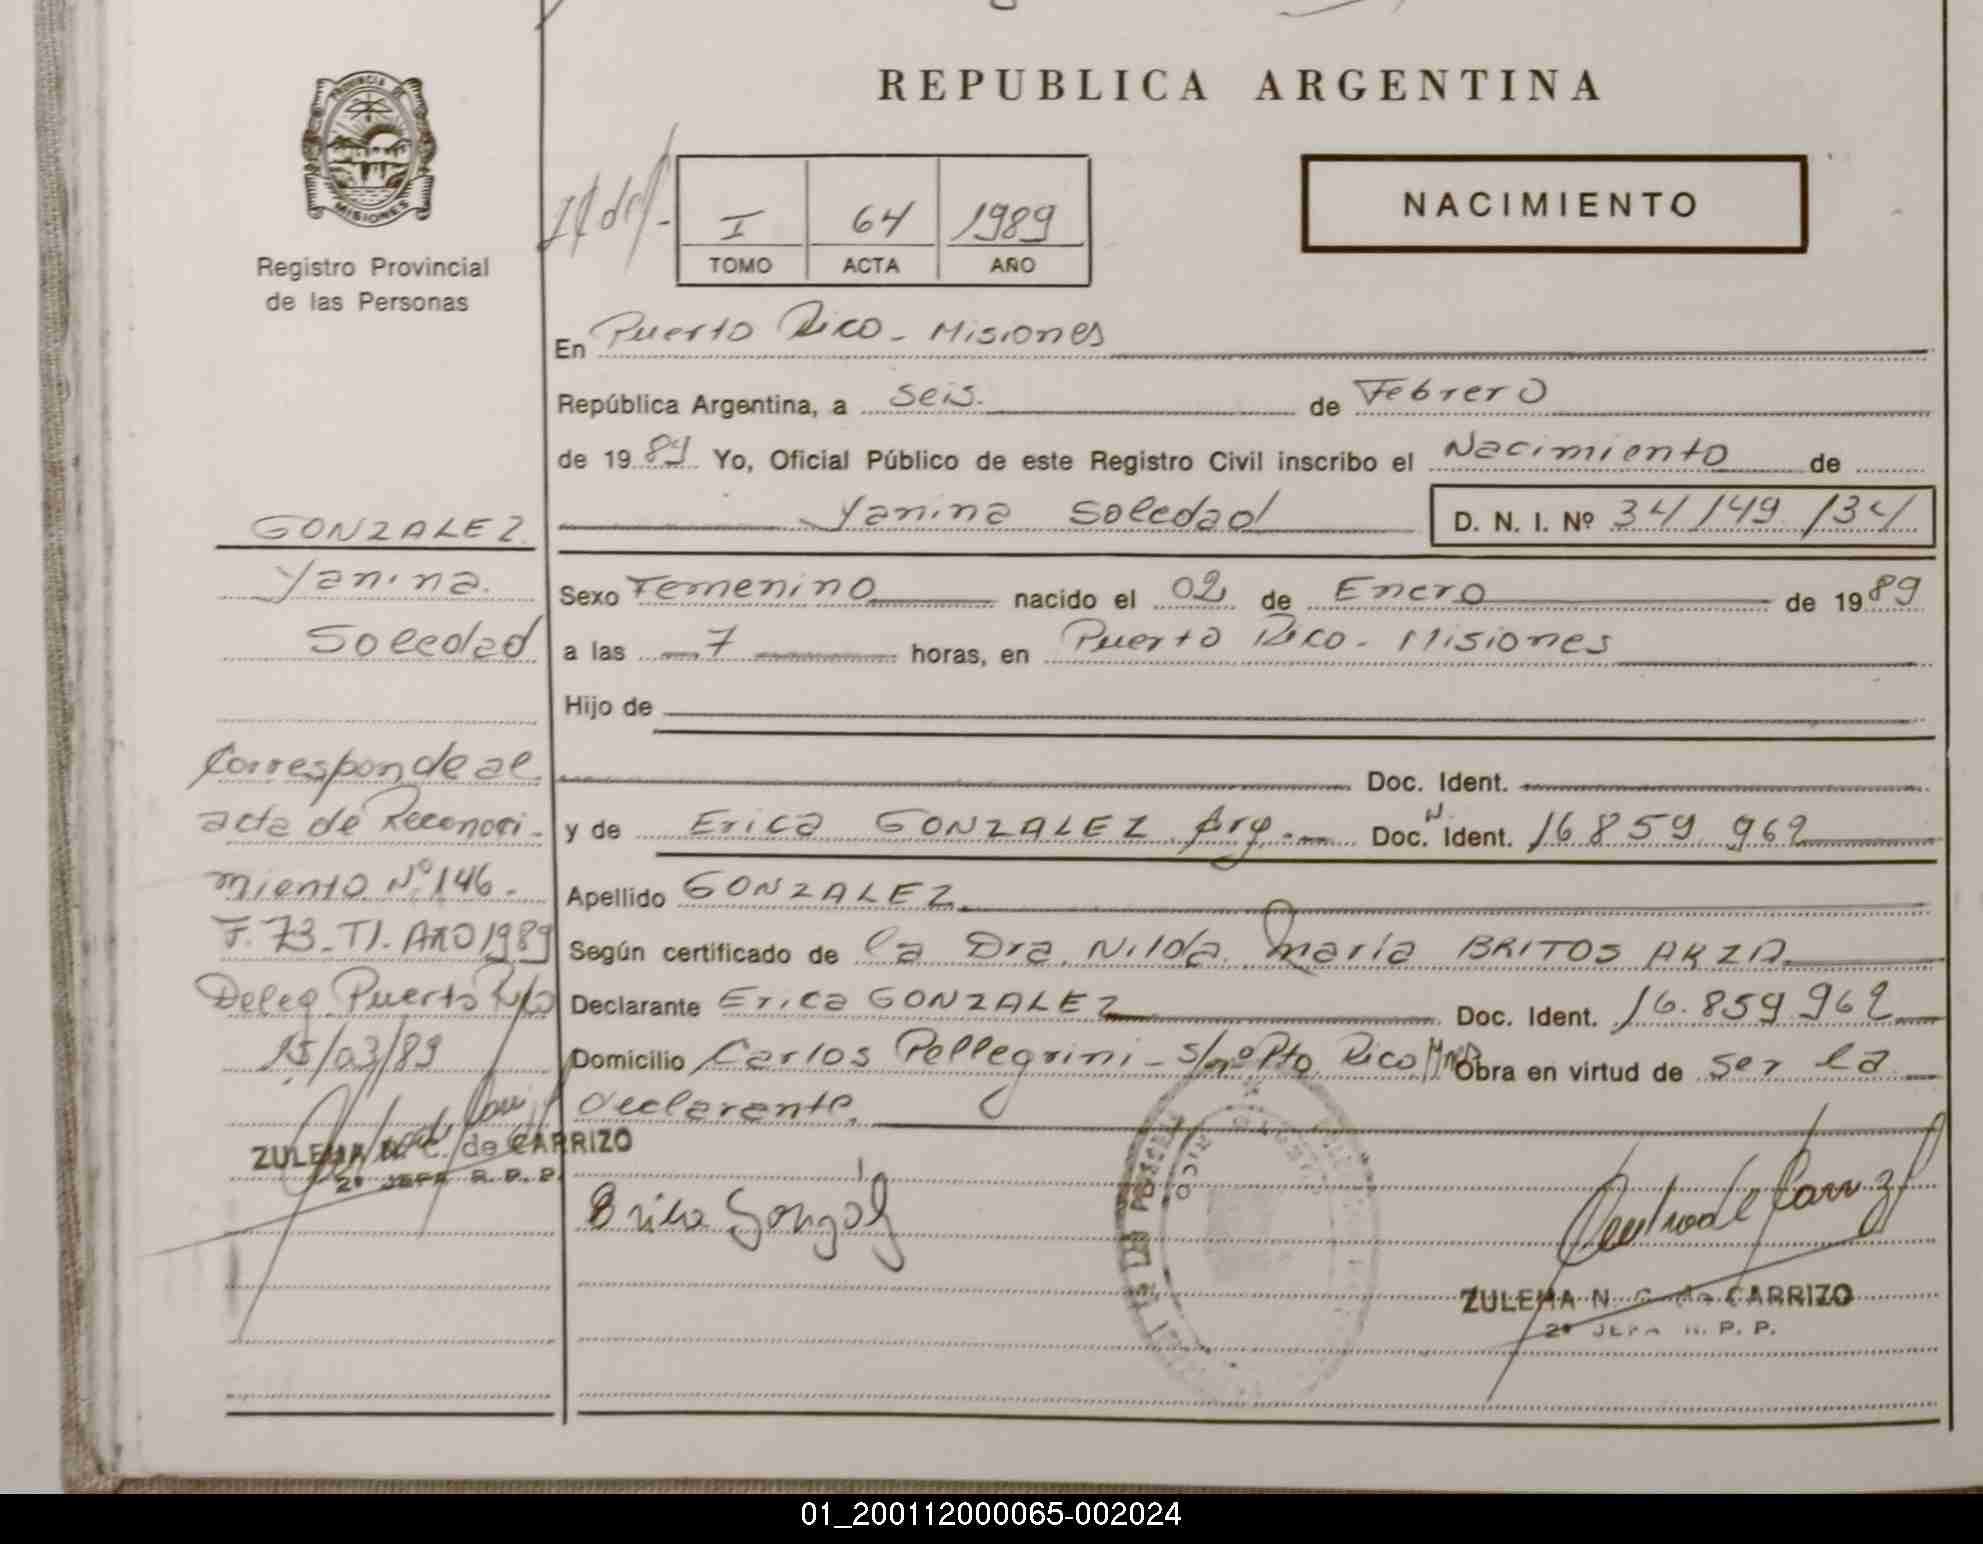 REPUBLICA ARGENTINA
PROVINCIA DE
MISIONES
Registro Provincial
de las Personas
I 64 1989
TOMO ACTA AÑO
NACIMIENTO
En Puerto Rico - Misiones
República Argentina, a seis. de Febrero
de 1989 Yo, Oficial Público de este Registro Civil inscribo el Nacimiento de
Yanina Soledad D. N. I. Nº 34/149/34
Sexo Femenino nacido el 02 de Enero de 1989
a las 7 horas, en Puerto Rico - Misiones
Hijo de
Doc. Ident.
y de Erica GONZALEZ Arg. Doc. Ident. 16859 962
Apellido GONZALEZ
Según certificado de la Dra. Nilda Maria BRITOS ARZA
Declarante Erica GONZALEZ Doc. Ident. 16.859 962
Domicilio Carlos Pellegrini - s/nº Pto Rico Mnes Obra en virtud de ser la
declarante.
GONZALEZ
Yanina
Soledad
Corresponde al
acta de Reconoci-
miento Nº 146.
F. 73 - TI. AÑO 1989
Deleg. Puerto Rico
15/03/89
ZULEMA N. C. de CARRIZO
2º JEFA R. P. P.
Erica Gonzalez
ZULEMA N. C. de CARRIZO
2º JEFA R. P. P.
01_200112000065-002024